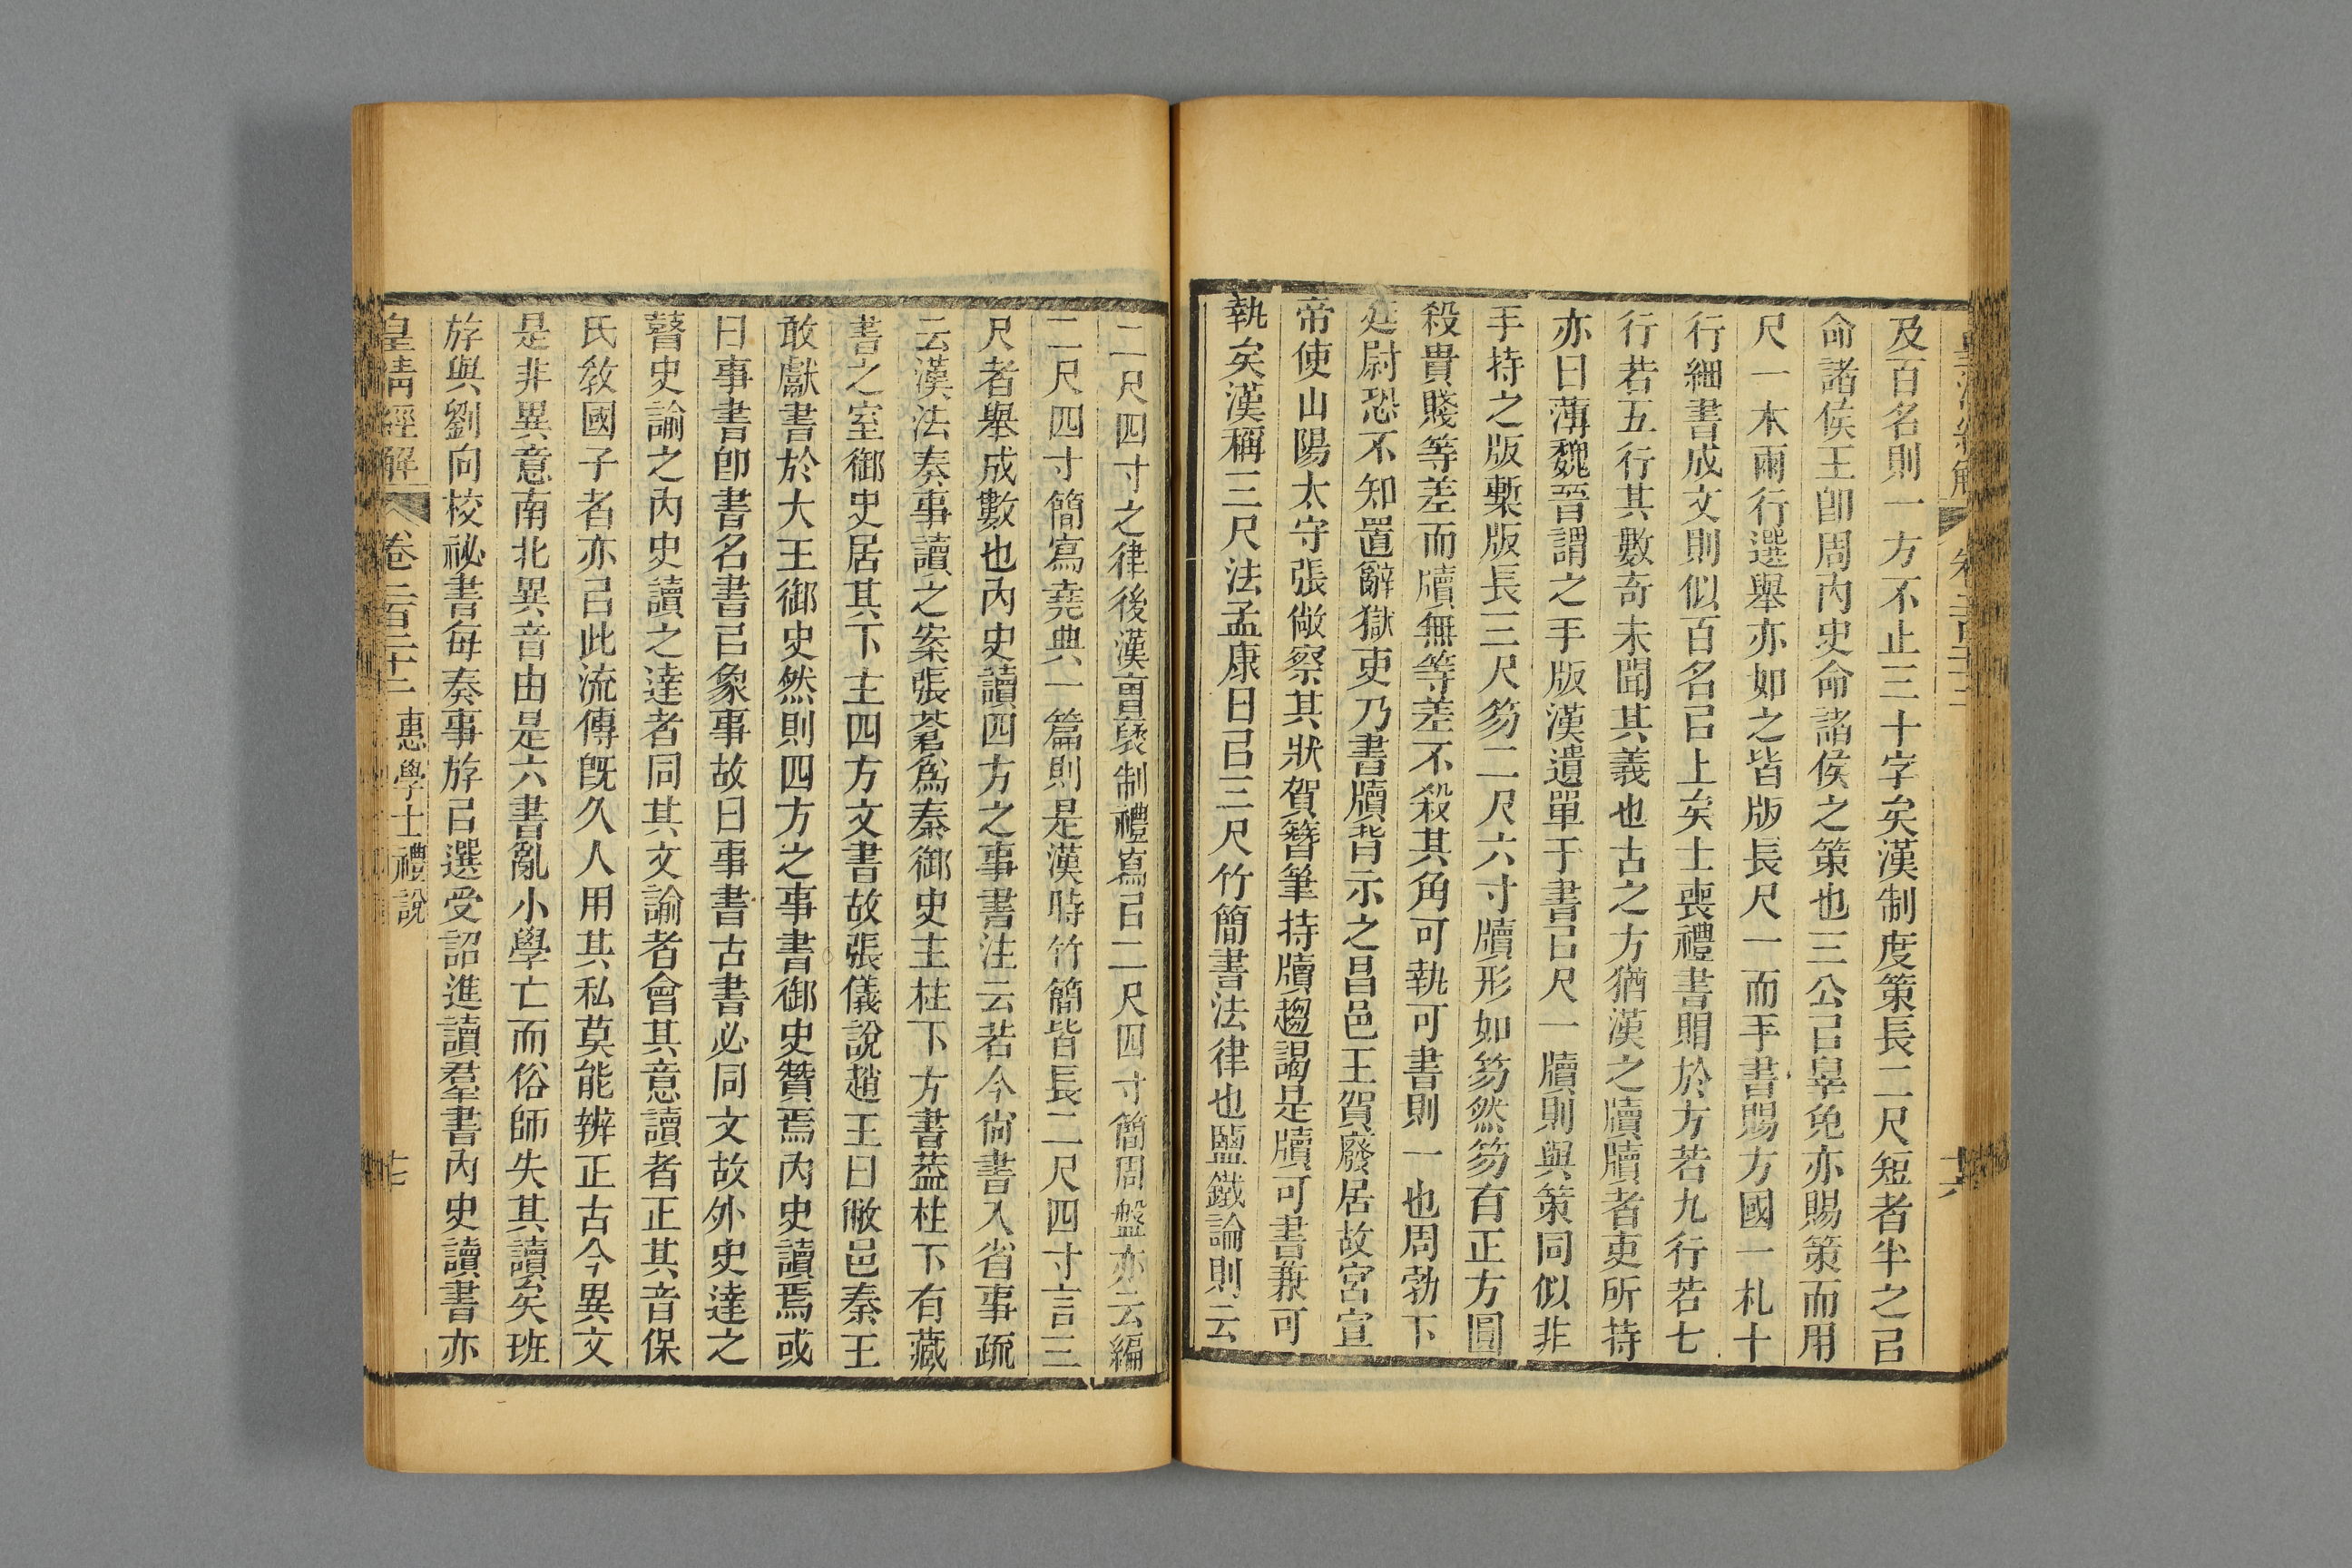 及百名則一方不止三十字矣漢制度策長二尺短者半之㠯
命諸侯王卽周內史命諸侯之策也三公㠯辠免亦賜策而用
尺一木兩行選舉亦如之皆版長尺一而手書賜方國一札十
行細書成文則似百名㠯上矣士喪禮書賵於方若九行若七
行若五行其數奇未聞其義也古之方猶漢之牘牘者吏所持
亦曰薄魏晉謂之手版漢遺單于書㠯尺一牘則與策同似非
手持之版槧版長三尺笏二尺六寸牘形如笏然笏有正方圓
殺貴賤等差而牘無等差不殺其角可執可書則一也周勃下
廷尉恐不知置辭獄吏乃書牘背示之昌邑王賀廢居故宮宣
帝使山陽太守張敞察其狀賀簪筆持牘趨謁是牘可書兼可
執矣漢稱三尺法孟康曰㠯三尺竹簡書法律也鹽鐵論則云
二尺四寸之律後漢曺襃制禮寫㠯二尺四寸簡周盤亦云編
二尺四寸簡寫堯典一篇則是漢時竹簡皆長二尺四寸言三
尺者舉成數也內史讀四方之事書注云若今尙書入省事疏
云漢法奏事讀之案張蒼爲秦御史主柱下方書葢柱下有藏
書之室御史居其下主四方文書故張儀說趙王曰敝邑秦王
敢獻書於大王御史然則四方之事書御史贊焉內史讀焉或
曰事書卽書名書㠯象事故曰事書古書必同文故外史達之
瞽史諭之內史讀之達者同其文諭者會其意讀者正其音保
氏敎國子者亦㠯此流傳旣久人用其私莫能辨正古今異文
是非異意南北異音由是六書亂小學亡而俗師失其讀矣班
斿與劉向校祕書每奏事斿㠯選受詔進讀羣書內史讀書亦
皇淸經解 卷二百二十二 惠學士禮說 十七